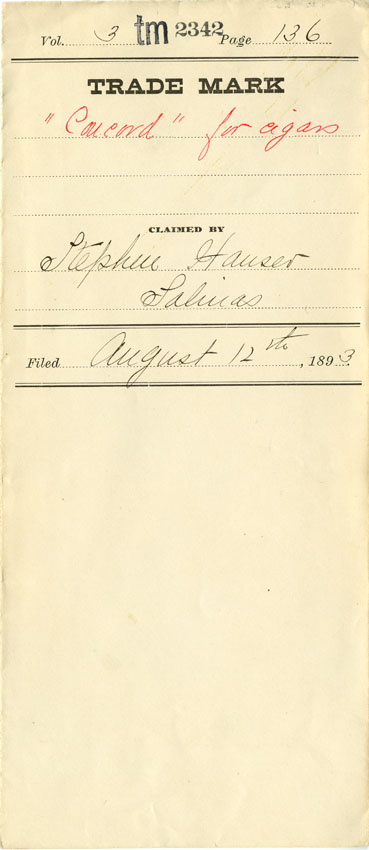 Vol. 3 tm 2342 Page 136
TRADE MARK
"Concord" for cigars
CLAIMED BY
Stephen Hauser
Salinas
Filed August 12th, 1893